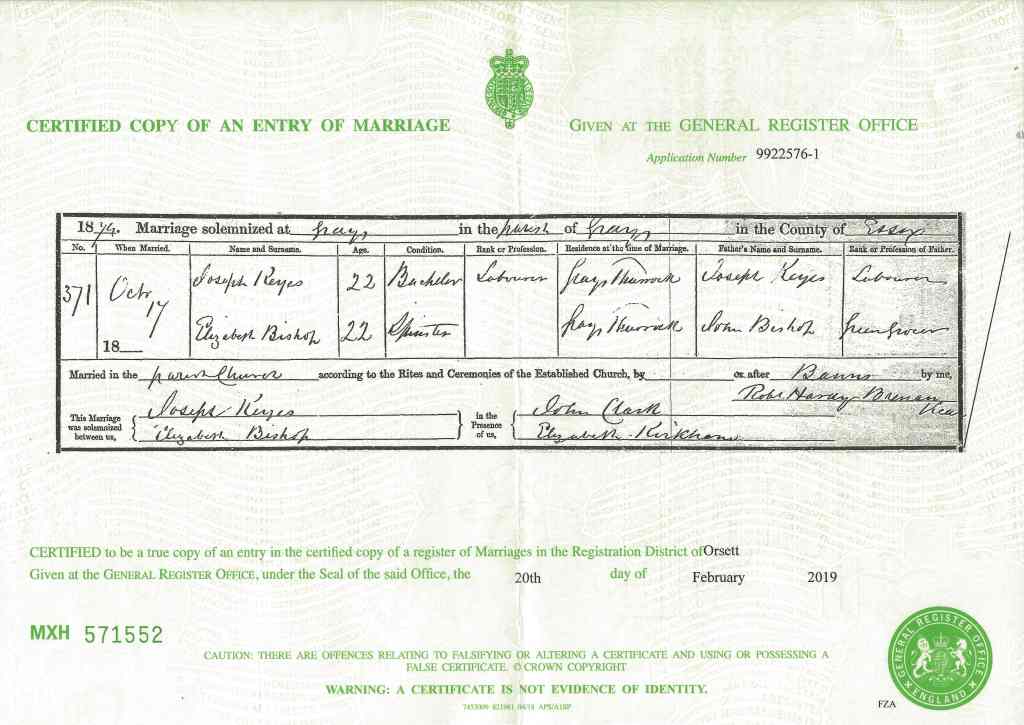 CERTIFIED COPY OF AN ENTRY OF MARRIAGE
GIVEN AT THE GENERAL REGISTER OFFICE
Application Number 9922576-1
1874. Marriage solemnized at Grays in the parish of Grays in the County of Essex
No. When Married. Name and Surname. Age. Condition. Rank or Profession. Residence at the time of Marriage. Father's Name and Surname. Rank or Profession of Father.
371 Octr 17 18 Joseph Keyes 22 Bachelor Labourer Grays Thurrock Joseph Keyes Labourer
Elizabeth Bishop 22 Spinster Grays Thurrock John Bishop Green Grocer
Married in the parish Church according to the Rites and Ceremonies of the Established Church, by or after Banns by me,
Robt Hardy Brenan
This Marriage was solemnized between us, Joseph Keyes in the Presence of us, John Clark
Elizabeth Bishop Elizabeth Kirkham
CERTIFIED to be a true copy of an entry in the certified copy of a register of Marriages in the Registration District of Orsett
Given at the GENERAL REGISTER OFFICE, under the Seal of the said Office, the 20th day of February 2019
MXH 571552
CAUTION: THERE ARE OFFENCES RELATING TO FALSIFYING OR ALTERING A CERTIFICATE AND USING OR POSSESSING A
FALSE CERTIFICATE. © CROWN COPYRIGHT
WARNING: A CERTIFICATE IS NOT EVIDENCE OF IDENTITY.
GENERAL REGISTER OFFICE
ENGLAND
FZA